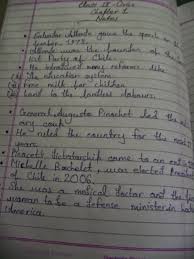 Class IX - Civics
Chapter 1
Notes
• Salvador Allende gave the speech on
1973.
• Allende was the founder of the
ist Party of Chile.
• He introduced many reforms like
(1) The education system
(2) Free milk for children
(3) Land to the landless
• General Augusto Pinochet led the
• He ruled the country for the next
years.
• Pinochet dictatorship came to an
• Michelle Bachelet, was elected
of Chile in 2006.
She was a medical doctor and the
woman to be a defense minister in
America.